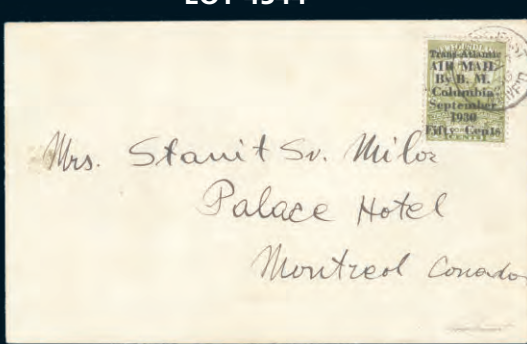 Trans-Atlantic
AIR MAIL
By B. M.
Columbia
September
1930
Fifty Cents
Mrs. Stanit Sv. Milos
Palace Hotel
Montreal Canada